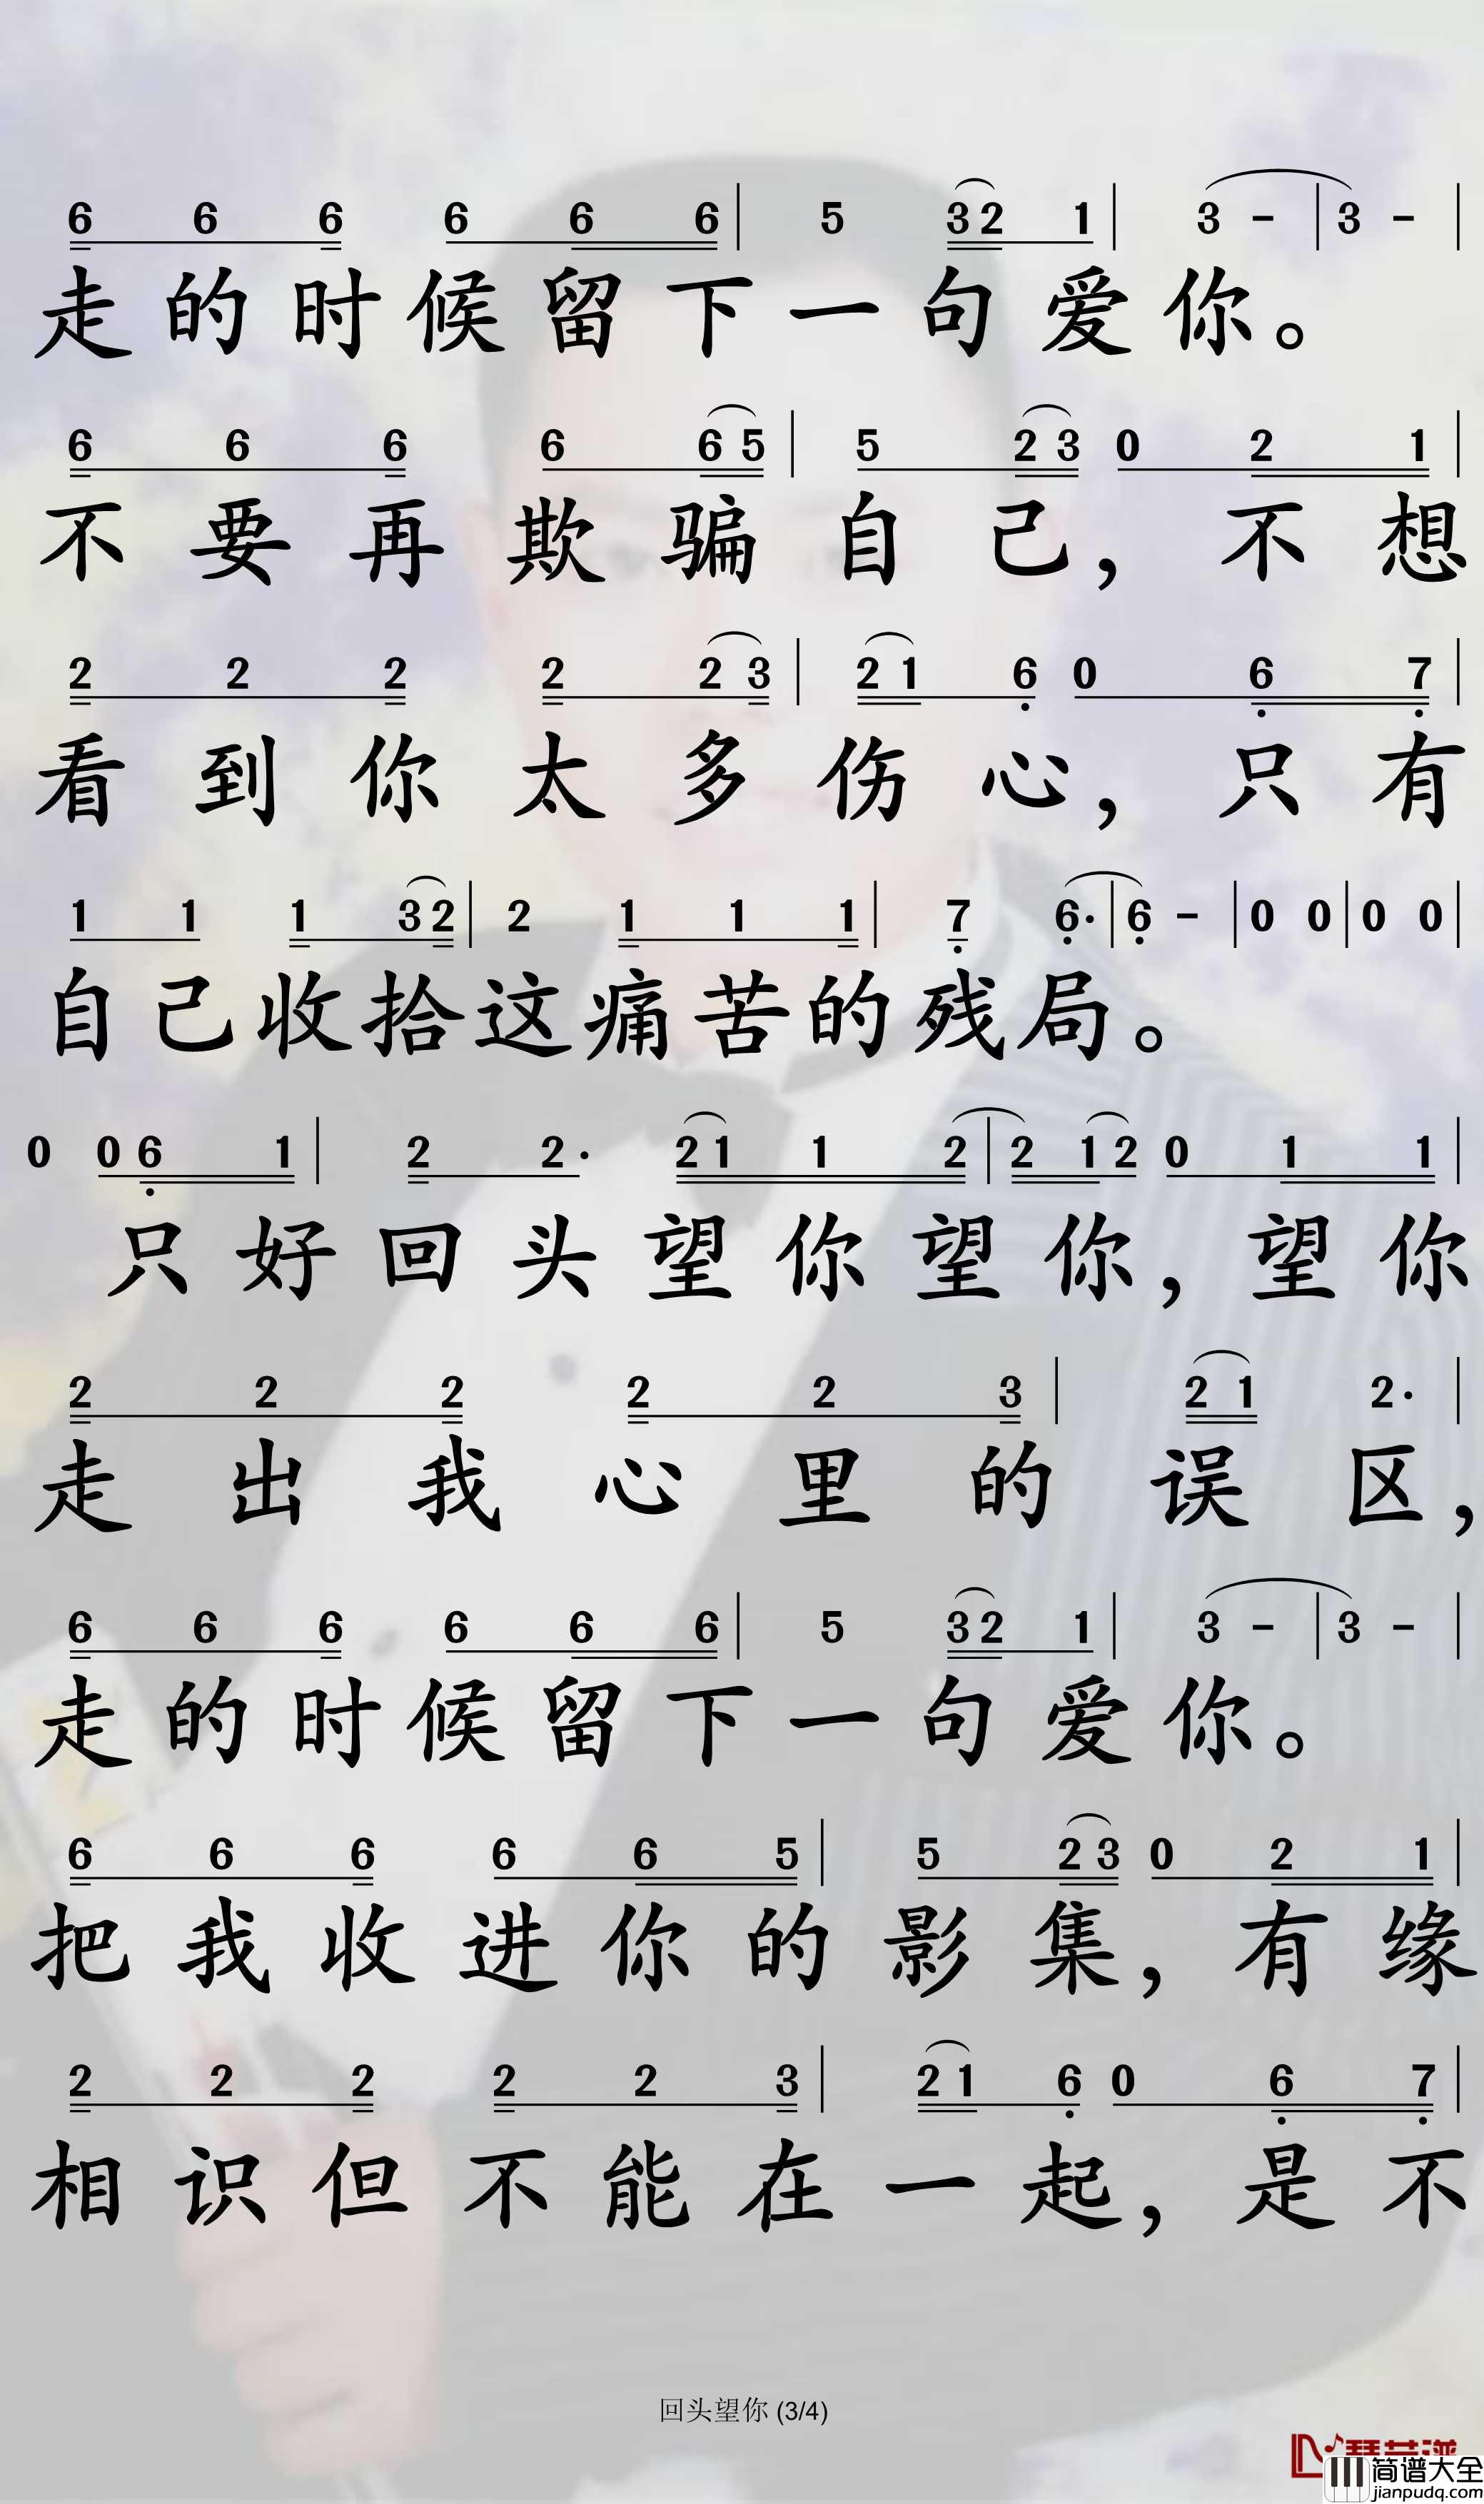 6 6 6 6 6 6 | 5 3 2 1 | 3 - | 3 - |
走的时候留下一句爱你。
6 6 6 6 6 5 | 5 2 3 0 2 1 |
不要再欺骗自己,不想
2 2 2 2 2 3 | 2 1 6 0 6 7 |
看到你太多伤心,只有
1 1 1 3 2 | 2 1 1 1 | 7 6· | 6 - | 0 0 | 0 0 |
自己收拾这痛苦的残局。
0 0 6 1 | 2 2· 2 1 1 2 | 2 1 2 0 1 1 |
只好回头望你望你,望你
2 2 2 2 2 3 | 2 1 2· |
走出我心里的误区,
6 6 6 6 6 6 | 5 3 2 1 | 3 - | 3 - |
走的时候留下一句爱你。
6 6 6 6 6 5 | 5 2 3 0 2 1 |
把我收进你的影集,有缘
2 2 2 2 2 3 | 2 1 6 0 6 7 |
相识但不能在一起,是不
回头望你 (3/4)
简谱大全
jianpudq.com